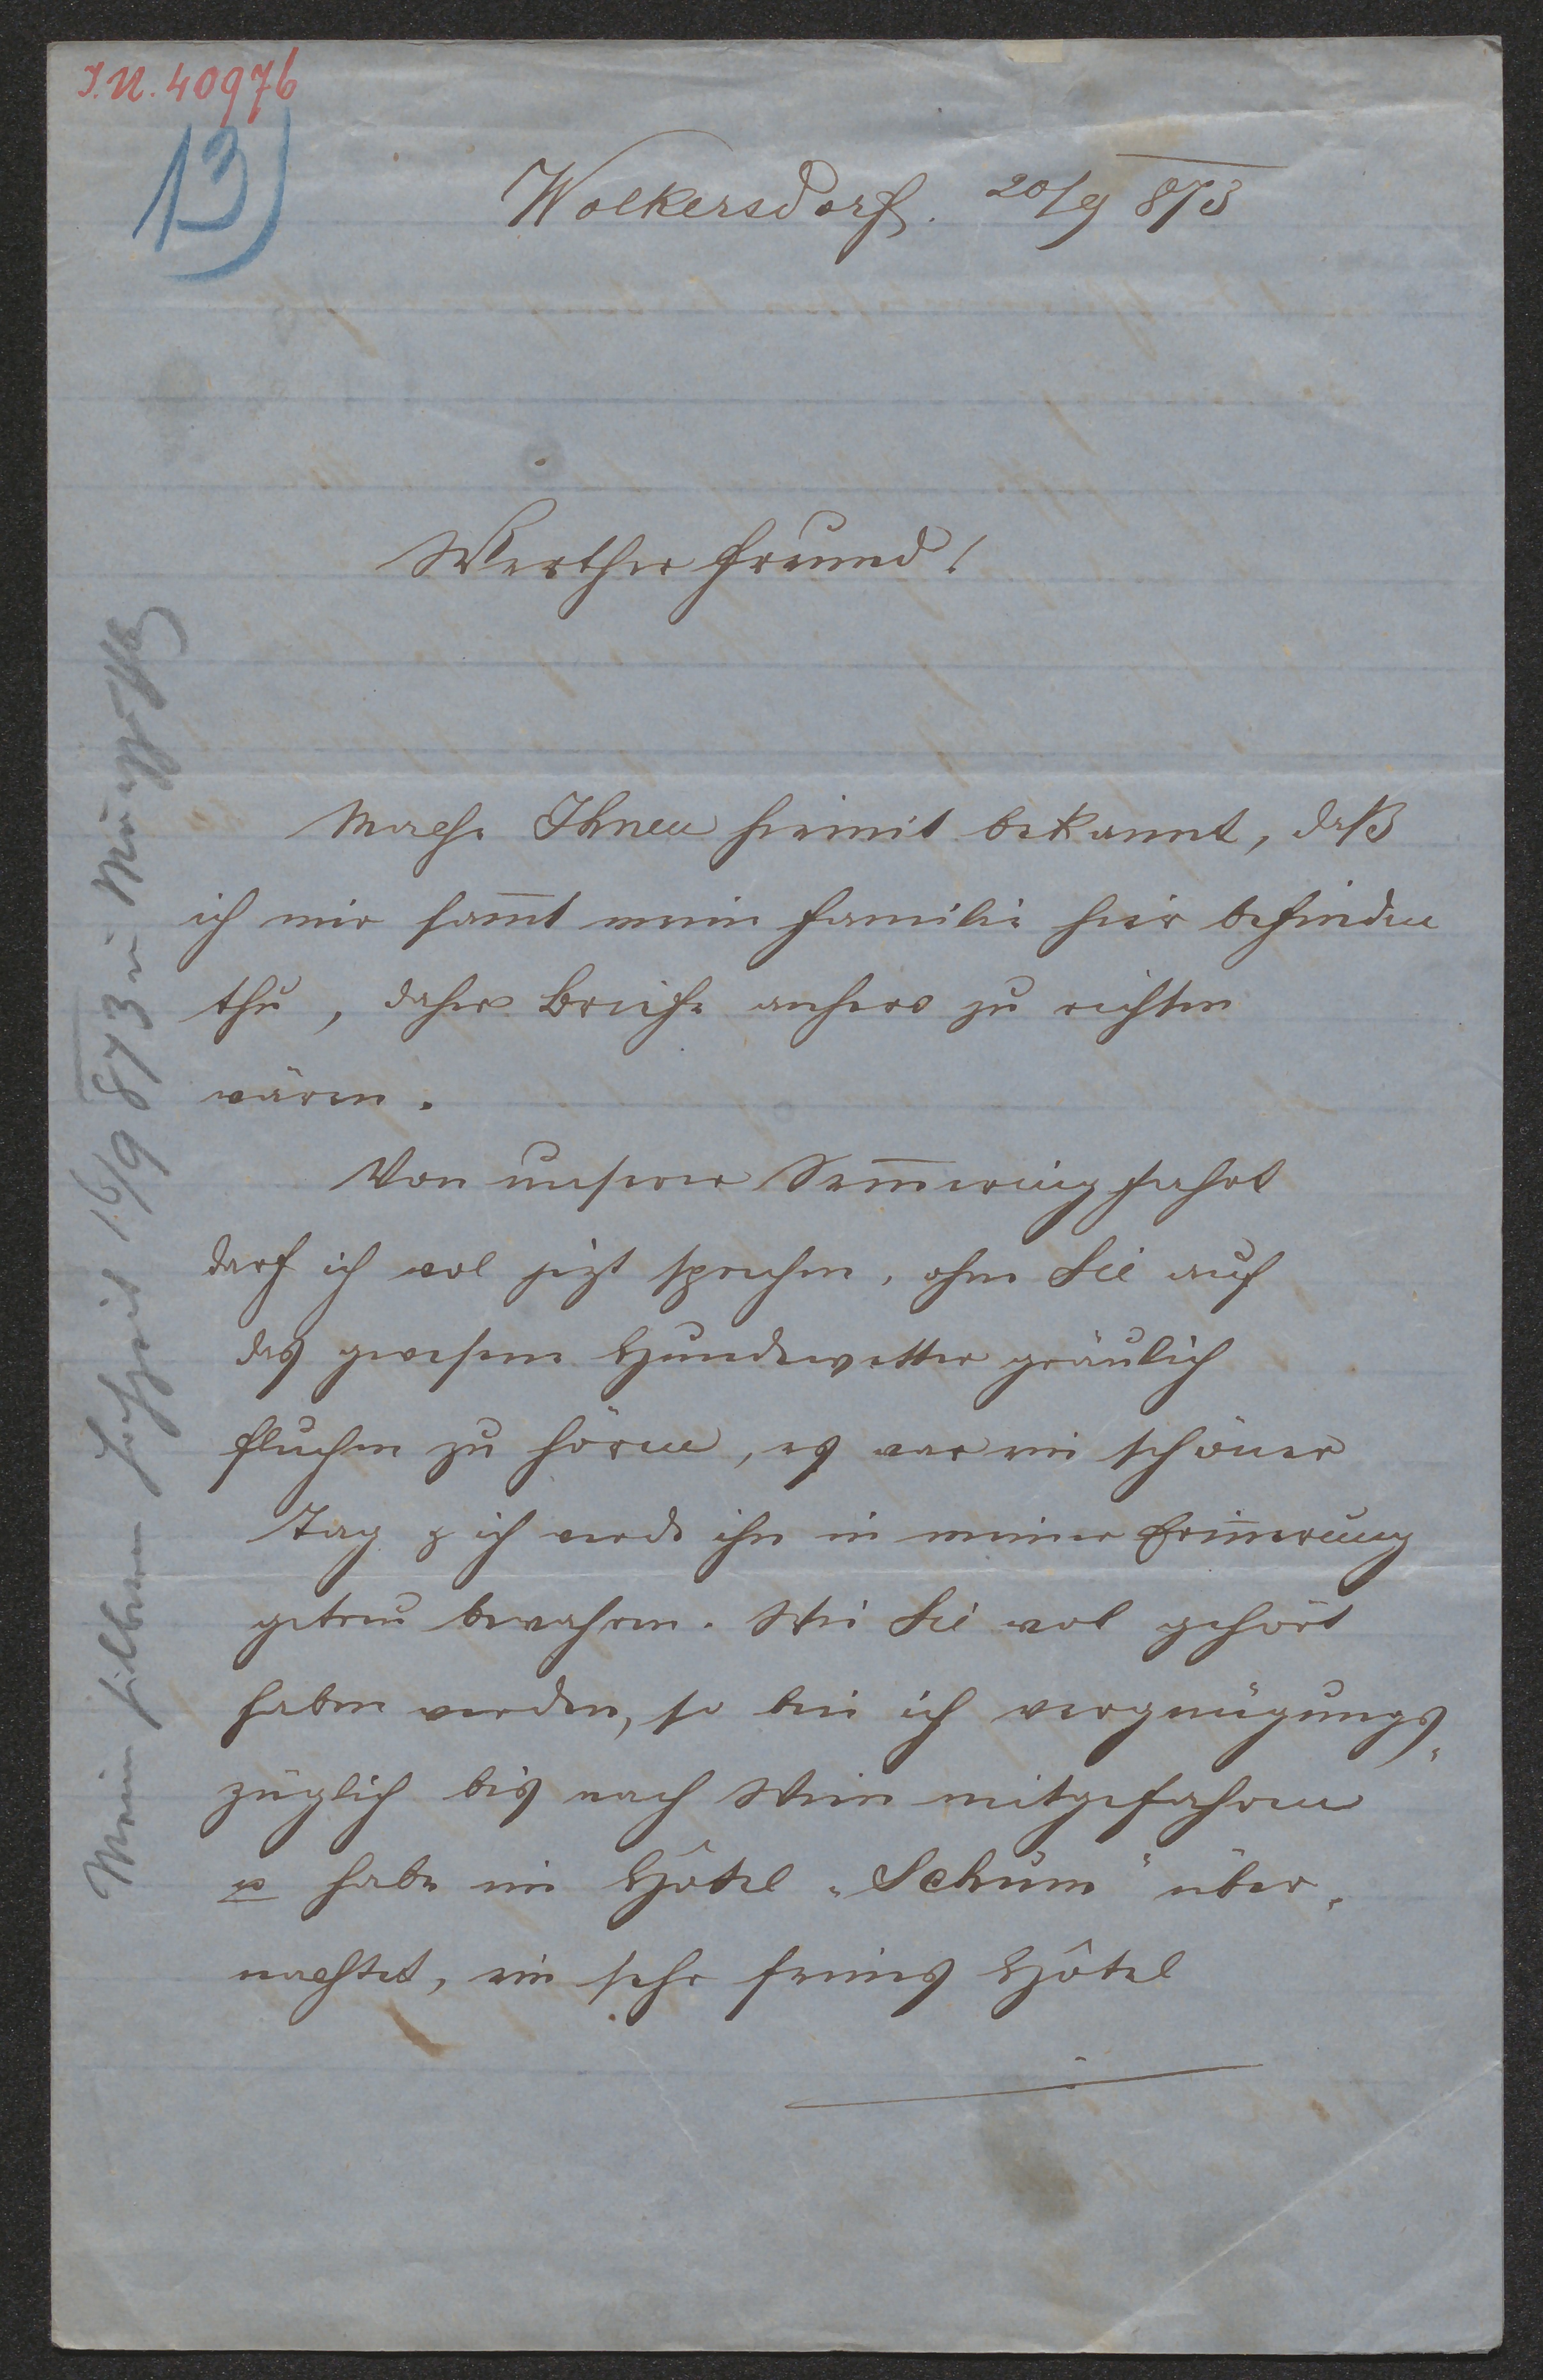 I.N. 40976
13)
Wolkersdorf. 20/9 873
Werther Freund!
Mache Ihnen hiemit bekannt, daß
ich mir sam̄t mein Familie hier befinden
thu, daher Briefe anhero zu richten
wären.
Von unserer Sem̄eringfahrt
darf ich wol jezt sprechen, ohne Sie auf
das gewesene Hundewetter gräulich
fluchen zu hören, es war ein schöner
Tag & ich werde ihn in meiner Erin̄erung
getreu bewahren. Wie Sie wol gehört
haben werden, so bin ich vergnügungs„
züglich bis nach Wien mitgefahren
& habe im Hôtel „Schum“ über„
nachtet, ein sehr feines Hôtel
Meine silberne Hochzeit 16/9 873 in